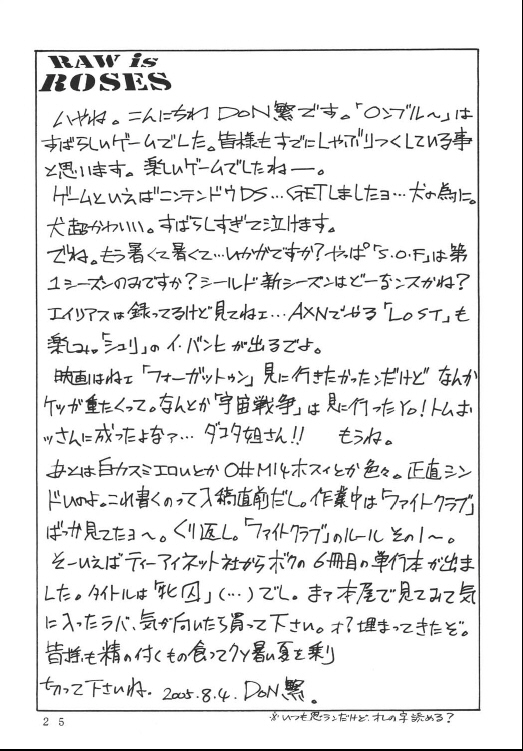 RAW is
ROSES
いやね。こんにちわ DoN繁です。「ロンブル～」は
すばらしいゲームでした。皆様もすでにしゃぶりつくしている事
と思います。楽しいゲームでしたねー。
ゲームといえばニンテンドウDS…GETしましたヨ…犬の為に。
犬超かわいい。すばらしすぎて泣けます。
でね。もう暑くて暑くて…いかがですか?やっぱ「S.O.F」は第
1シーズンのみですか?シールド新シーズンはどーなンスかね?
エイリアスは録ってるけど見てねェ…AXNでやる「LoST」も
楽しみ。「シュリ」のイ・バンヒが出るでよ。
映画はねェ「フォーガットゥン」見に行きたかったンだけど なんか
ケツが重たくって。なんとか「宇宙戦争」は見に行ったYo!トムお
ッさんに成ったよなァ… ダコタ姐さん!! もうね。
あとは白カスミエロいとか O#M14ホスィとか色々。正直シン
ドいのよ。これ書くのって入稿直前だし。作業中は「ファイトクラブ」
ばっか見てたヨ～。くり返し。「ファイトクラブ」のルール その1～。
そーいえばティーアイネット社からボクの6冊目の単行本が出ま
した。タイトルは「牝囚」(…)でし。まァ本屋で見てみて気
に入ったラバ、気が向いたら買って下さい。オ?埋まってきたぞ。
皆様も精の付くもの食ってクソ暑い夏を乗り
切って下さいね. 2005.8.4. DoN繁。
※いつも思うンだけど、オレの字読める?
25